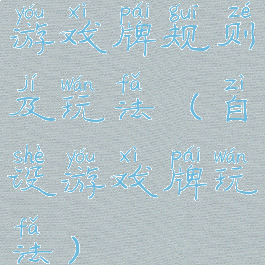 yóu xì pái guī zé
游戏牌规则
jí wán fǎ zì
及玩法（自
shè yóu xì pái wán
设游戏牌玩
fǎ
法）